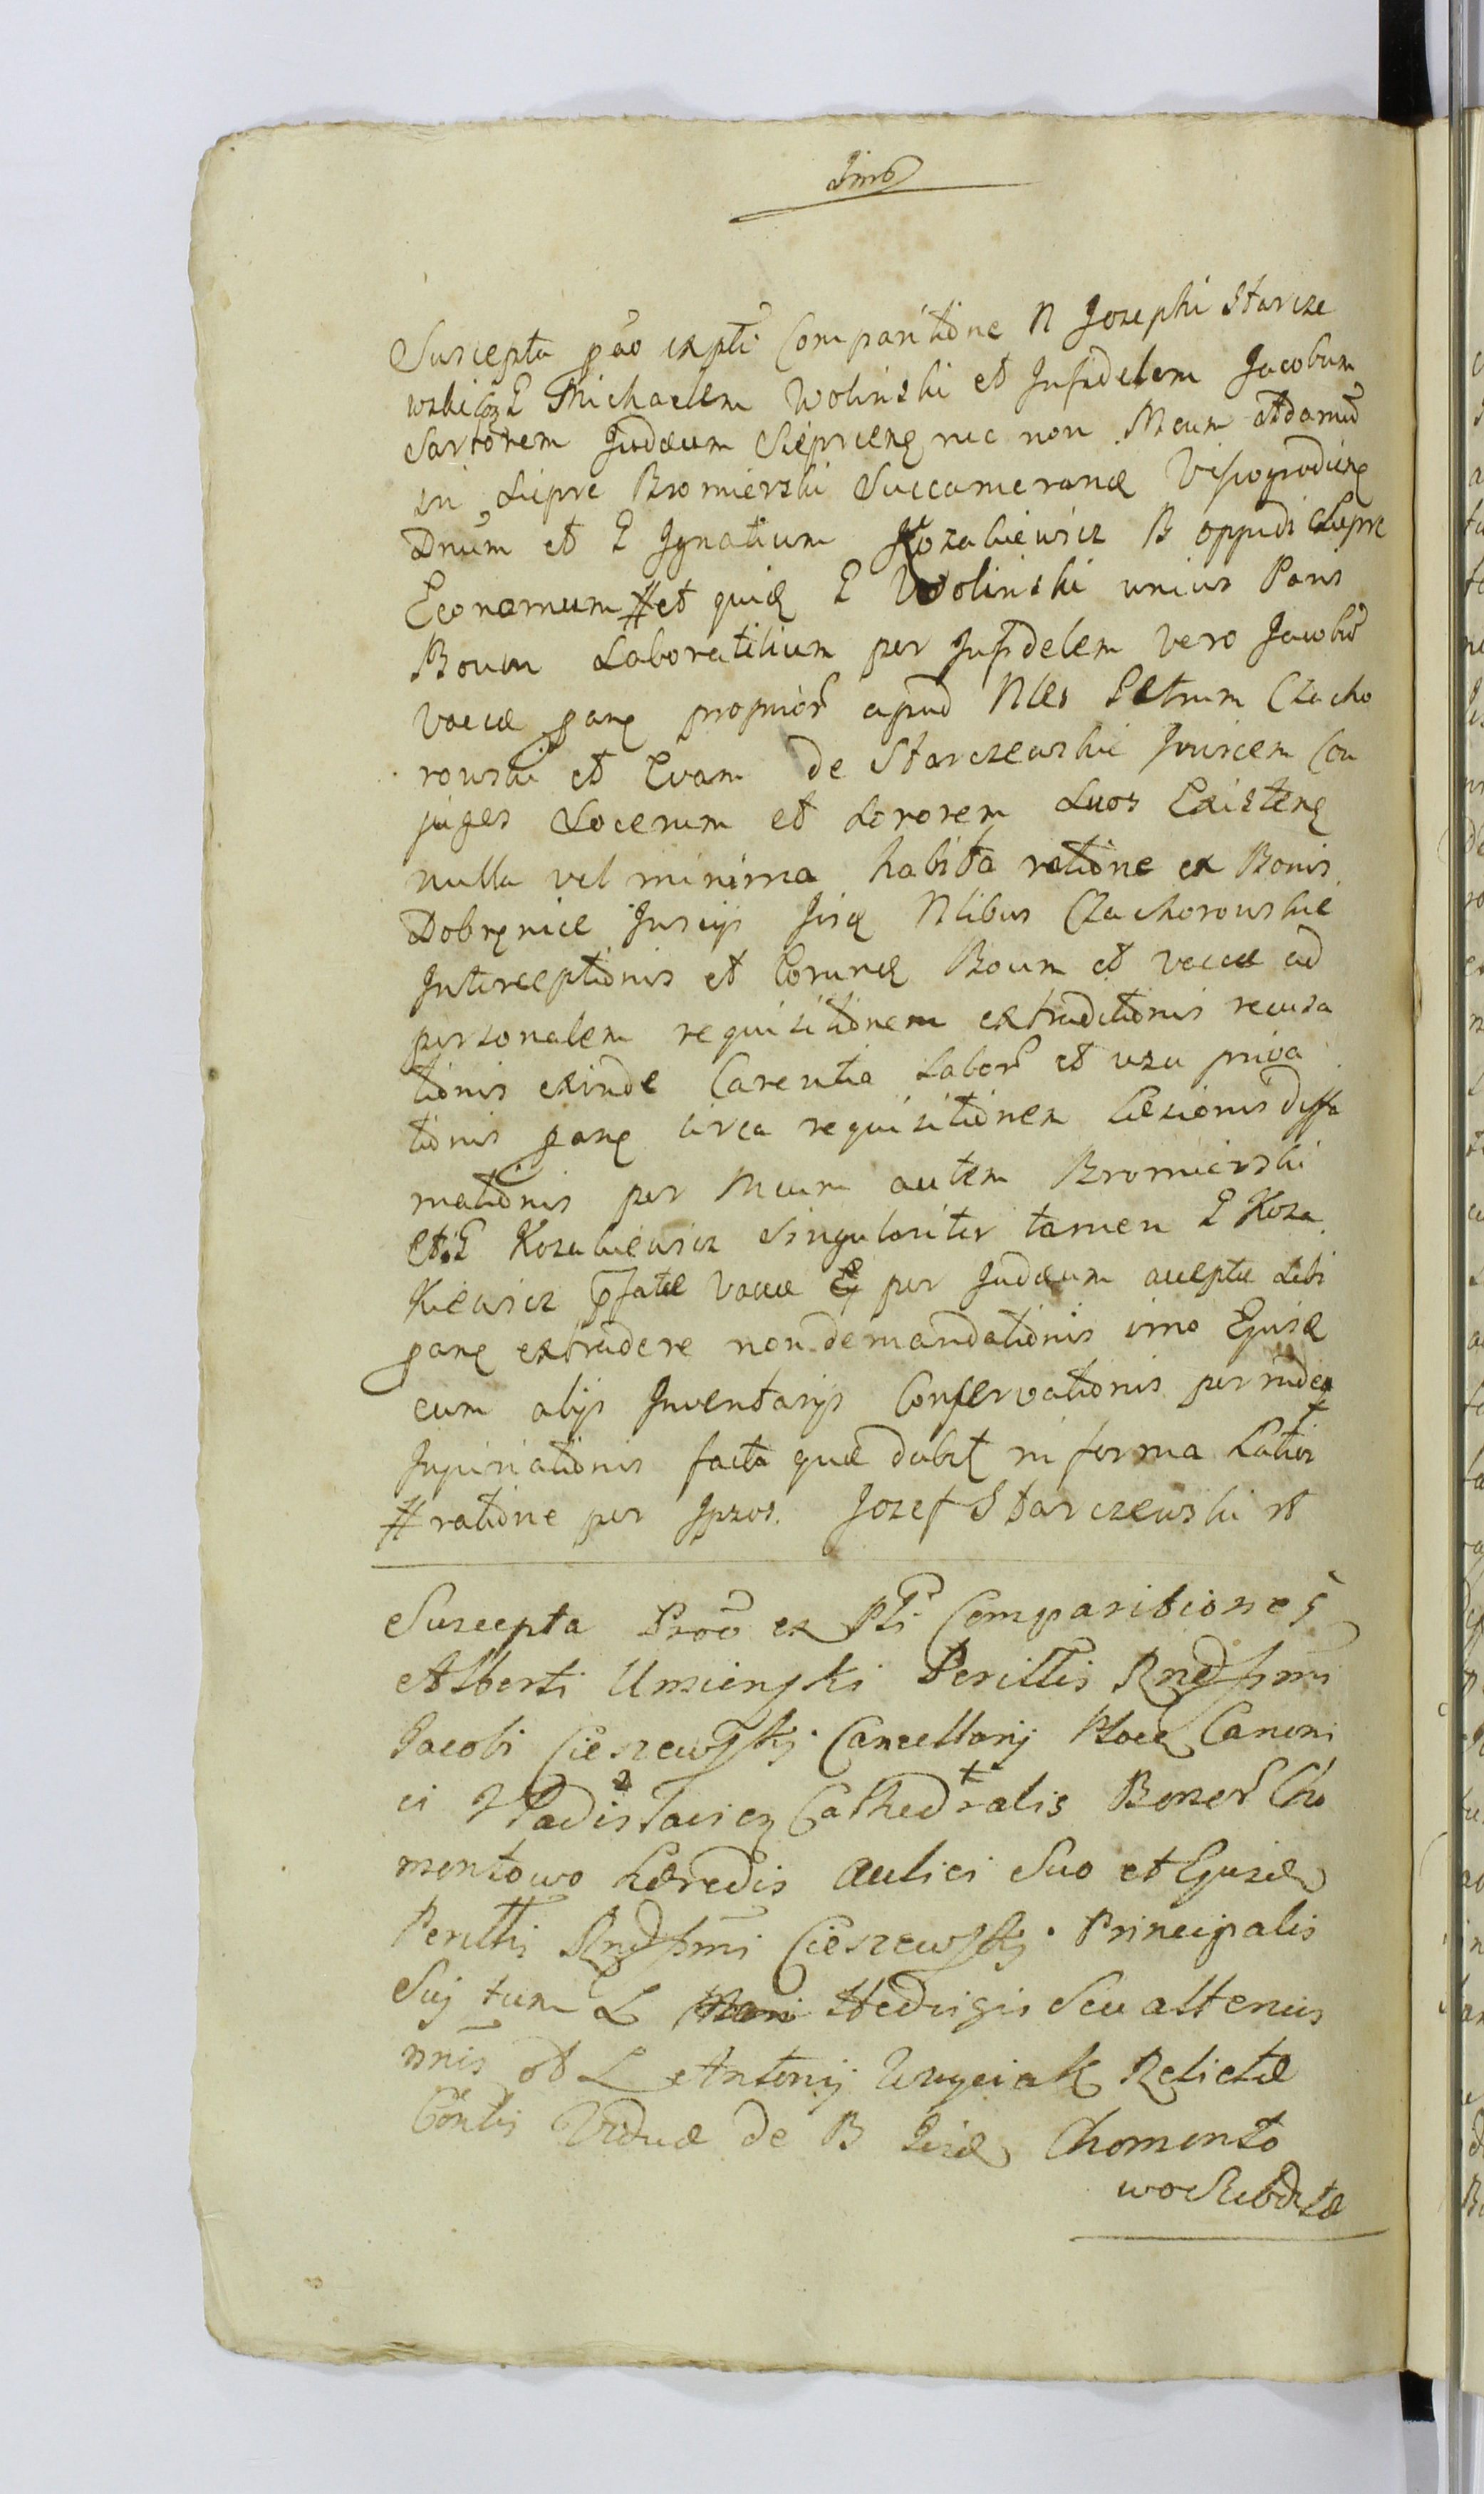 Suscepta pro expti Comparitione N Josephi Starcze
wski cora L Michaelem Wolinski et Infidelem Jacobum
Sartorem Judæum Sieprcens nec non Mcum Adamum
in Siepre Bromierski Succamerarid Visogrodiens
Dnum et L Ignatium Kozakiewicz B oppidi Siepre
Economum # et quid L Wolinski unius Paris
Boum Laboratilium per Infidelem vero Jacobum
vaccæ pare propriar apud Nles Petrum Czacho
rowski et Evam de Starczewskie Invicem Con
juges Socerum et Sororem Suos Existene
nulla vel minima habita ratione ex Bonis
Dobrenice Inscijs Iisd Nlibus Czachorowskie
Interceptionis et Eorund Boum et vaccæ ad
personalem requisitionem extraditionis recusa
tionis exinde Carentia Labor et usu priva
tionis pare circa requisitionem Lesionis diffa
mationis per Mcum autem Bromierski
et L Kozakiewicz Singulariter tamen L Koza
kiewicz pfatæ vaccæ per Judæum acceptæ Sibi
pare extradere non demandationis imo Ejusd
cum alijs Inventarijs Conservationis perinde
Injuriationis facta quæ dabit in forma Latior
# ratione per Ipsos. Jozef Starczewski
Suscepta Pro ex Pti Comparitione G
Alberti Umienski Perillis Rndssmi
Jacobi Cieszewskj Cancellarij Ploce Canoni
ci Vladislavien Cathedralis Bonor Cho
mentowo Hæredis Aulici Suo et Ejusd
Perillis Rndssmi Cieszewskj Principalis
Suj tum L Hedvigis Seu alterius
nnis ot L Antonij Relictæ
Contis Viduæ de B Iisd Chomento
wo Subditæ